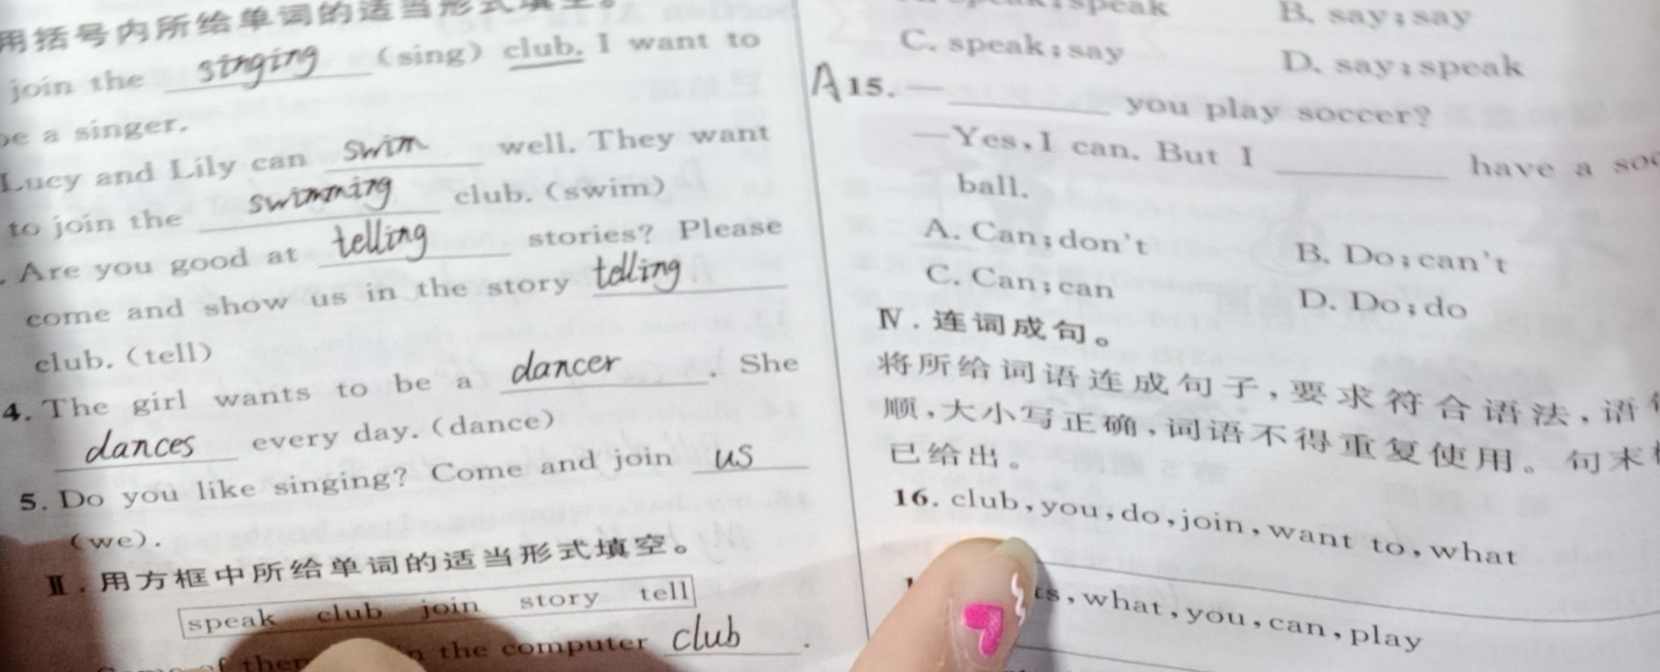 用括号内所给单词的适当形式填空。
join the singing (sing) club. I want to
be a singer.
Lucy and Lily can swim well. They want
to join the swimming club. (swim)
. Are you good at telling stories? Please
come and show us in the story telling
club. (tell)
4. The girl wants to be a dancer. She
dances every day. (dance)
5. Do you like singing? Come and join us
(we).
Ⅱ. 用方框中所给单词的适当形式填空。
speak club join story tell
of them the computer club.
speak B. say; say
C. speak; say D. say; speak
A 15. — ________ you play soccer?
—Yes, I can. But I ________ have a
ball.
A. Can; don't B. Do; can't
C. Can; can D. Do; do
Ⅳ. 连词成句。
将所给词语连成句子,要求符合语法,语
顺,大小写正确,词语不得重复使用。句末
已给出。
16. club, you, do, join, want to, what
, what, you, can, play